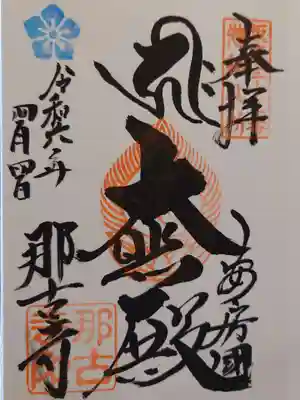 奉拝
安房國
大悲殿
令和六年
四月四日
那古寺